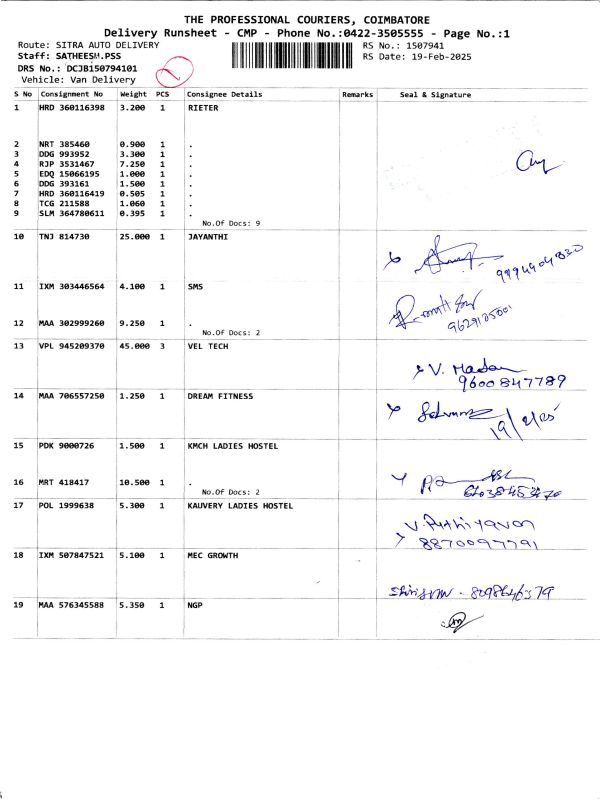 THE PROFESSIONAL COURIERS, COIMBATORE
Delivery Runsheet - CMP - Phone No.:0422-3505555 - Page No.:1
Route: SITRA AUTO DELIVERY RS No.: 1507941
Staff: SATHEESH.PSS RS Date: 19-Feb-2025
DRS No.: DCJB150794101
Vehicle: Van Delivery
2
S No Consignment No Weight PCS Consignee Details Remarks Seal & Signature
1 HRD 360116398 3.200 1 RIETER
2 NRT 385460 0.900 1 .
3 DDG 993952 3.300 1 .
4 RJP 3531467 7.250 1 .
5 EDQ 15066195 1.000 1 .
6 DDG 393161 1.500 1 .
7 HRD 360116419 0.505 1 .
8 TCG 211588 1.060 1 .
9 SLM 364780611 0.395 1 .
No.Of Docs: 9
10 TNJ 814730 25.000 1 JAYANTHI
11 IXM 303446564 4.100 1 SMS
9629125001
12 MAA 302999260 9.250 1 .
No.Of Docs: 2
13 VPL 945209370 45.000 3 VEL TECH
V. Madan
9600847789
14 MAA 706557250 1.250 1 DREAM FITNESS
19/2/25
15 PDK 9000726 1.500 1 KMCH LADIES HOSTEL
16 MRT 418417 10.500 1 .
No.Of Docs: 2
17 POL 1999638 5.300 1 KAUVERY LADIES HOSTEL
8870097791
18 IXM 507847521 5.100 1 MEC GROWTH
19 MAA 576345588 5.350 1 NGP